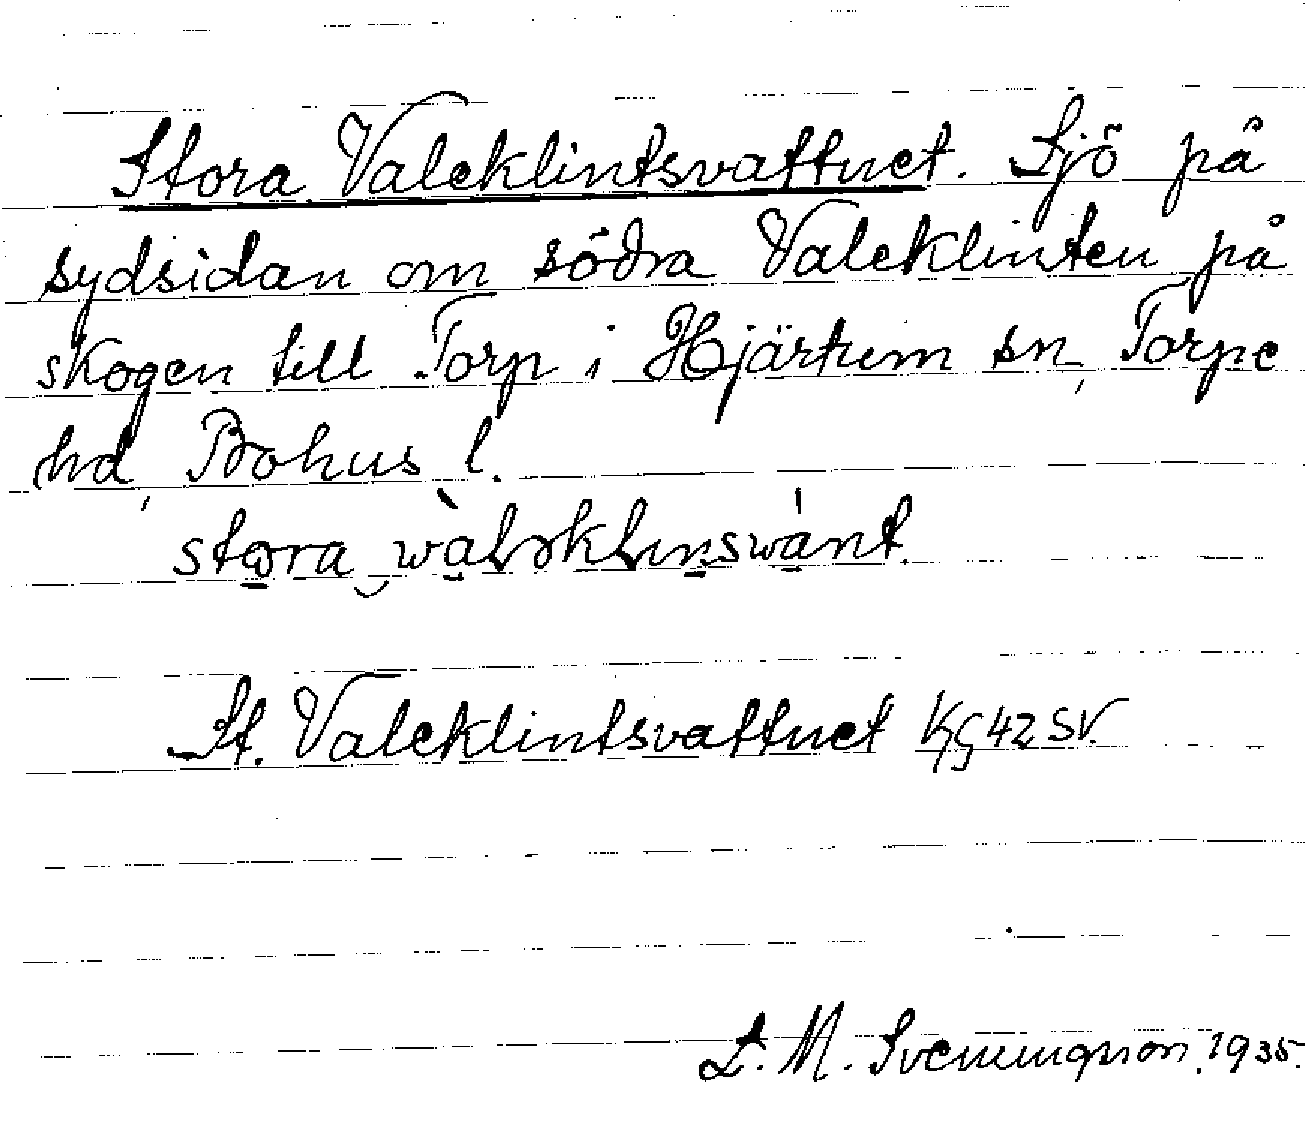 Stora Valeklintsvattnet. Sjö på
sydsidan om södra Valeklinten på
skogen till Torp i Hjärtum sn, Torpe
hd, Bohus l.
stora
St. Valeklintsvattnet KG42 SV.
L. M. Svenungsson, 1935.